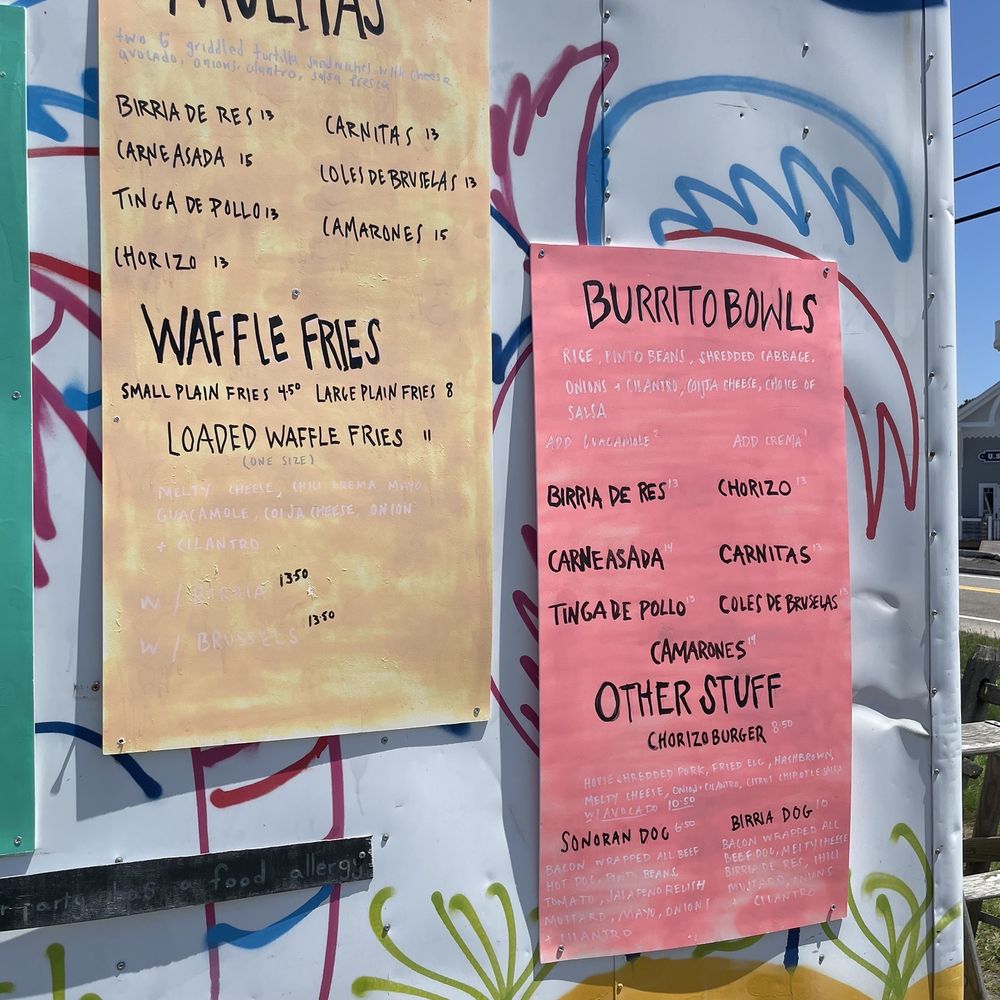 MULITAS
two 6" griddled tortilla sandwiches with cheese
avocado, onions, cilantro, salsa fresca
BIRRIA DE RES 13
CARNITAS 13
CARNE ASADA 15
COLES DE BRUSELAS 13
TINGA DE POLLO 13
CAMARONES 15
CHORIZO 13
WAFFLE FRIES
SMALL PLAIN FRIES 4.50 LARGE PLAIN FRIES 8
LOADED WAFFLE FRIES 11
(ONE SIZE)
MELTY CHEESE, CHILI CREMA MAYO
GUACAMOLE, COIJA CHEESE, ONION
+ CILANTRO
W/ BIRRIA 13.50
W/ BRUSSELS 13.50
BURRITO BOWLS
RICE, PINTO BEANS, SHREDDED CABBAGE,
ONIONS + CILANTRO, COIJTA CHEESE, CHOICE OF
SALSA
ADD GUACAMOLE 2 ADD CREMA 1
BIRRIA DE RES 13 CHORIZO 13
CARNE ASADA 14 CARNITAS 13
TINGA DE POLLO 13 COLES DE BRUSELAS 13
CAMARONES 14
OTHER STUFF
CHORIZO BURGER 8.50
HOUSE SHREDDED PORK, FRIED EGG, HASHBROWN,
MELTY CHEESE, ONION + CILANTRO, CITRUS CHIPOTLE SALSA
W/ AVOCADO 10.50
SONORAN DOG 6.50
BACON WRAPPED ALL BEEF
HOT DOG, PINTO BEANS,
TOMATO, JALAPENO RELISH
MUSTARD, MAYO, ONIONS
+ CILANTRO
BIRRIA DOG 10
BACON WRAPPED ALL
BEEF DOG, MELTY CHEESE
BIRRIA DE RES, CHILI
MUSTARD, ONIONS
+ CILANTRO
r party has a food allergy
U.S